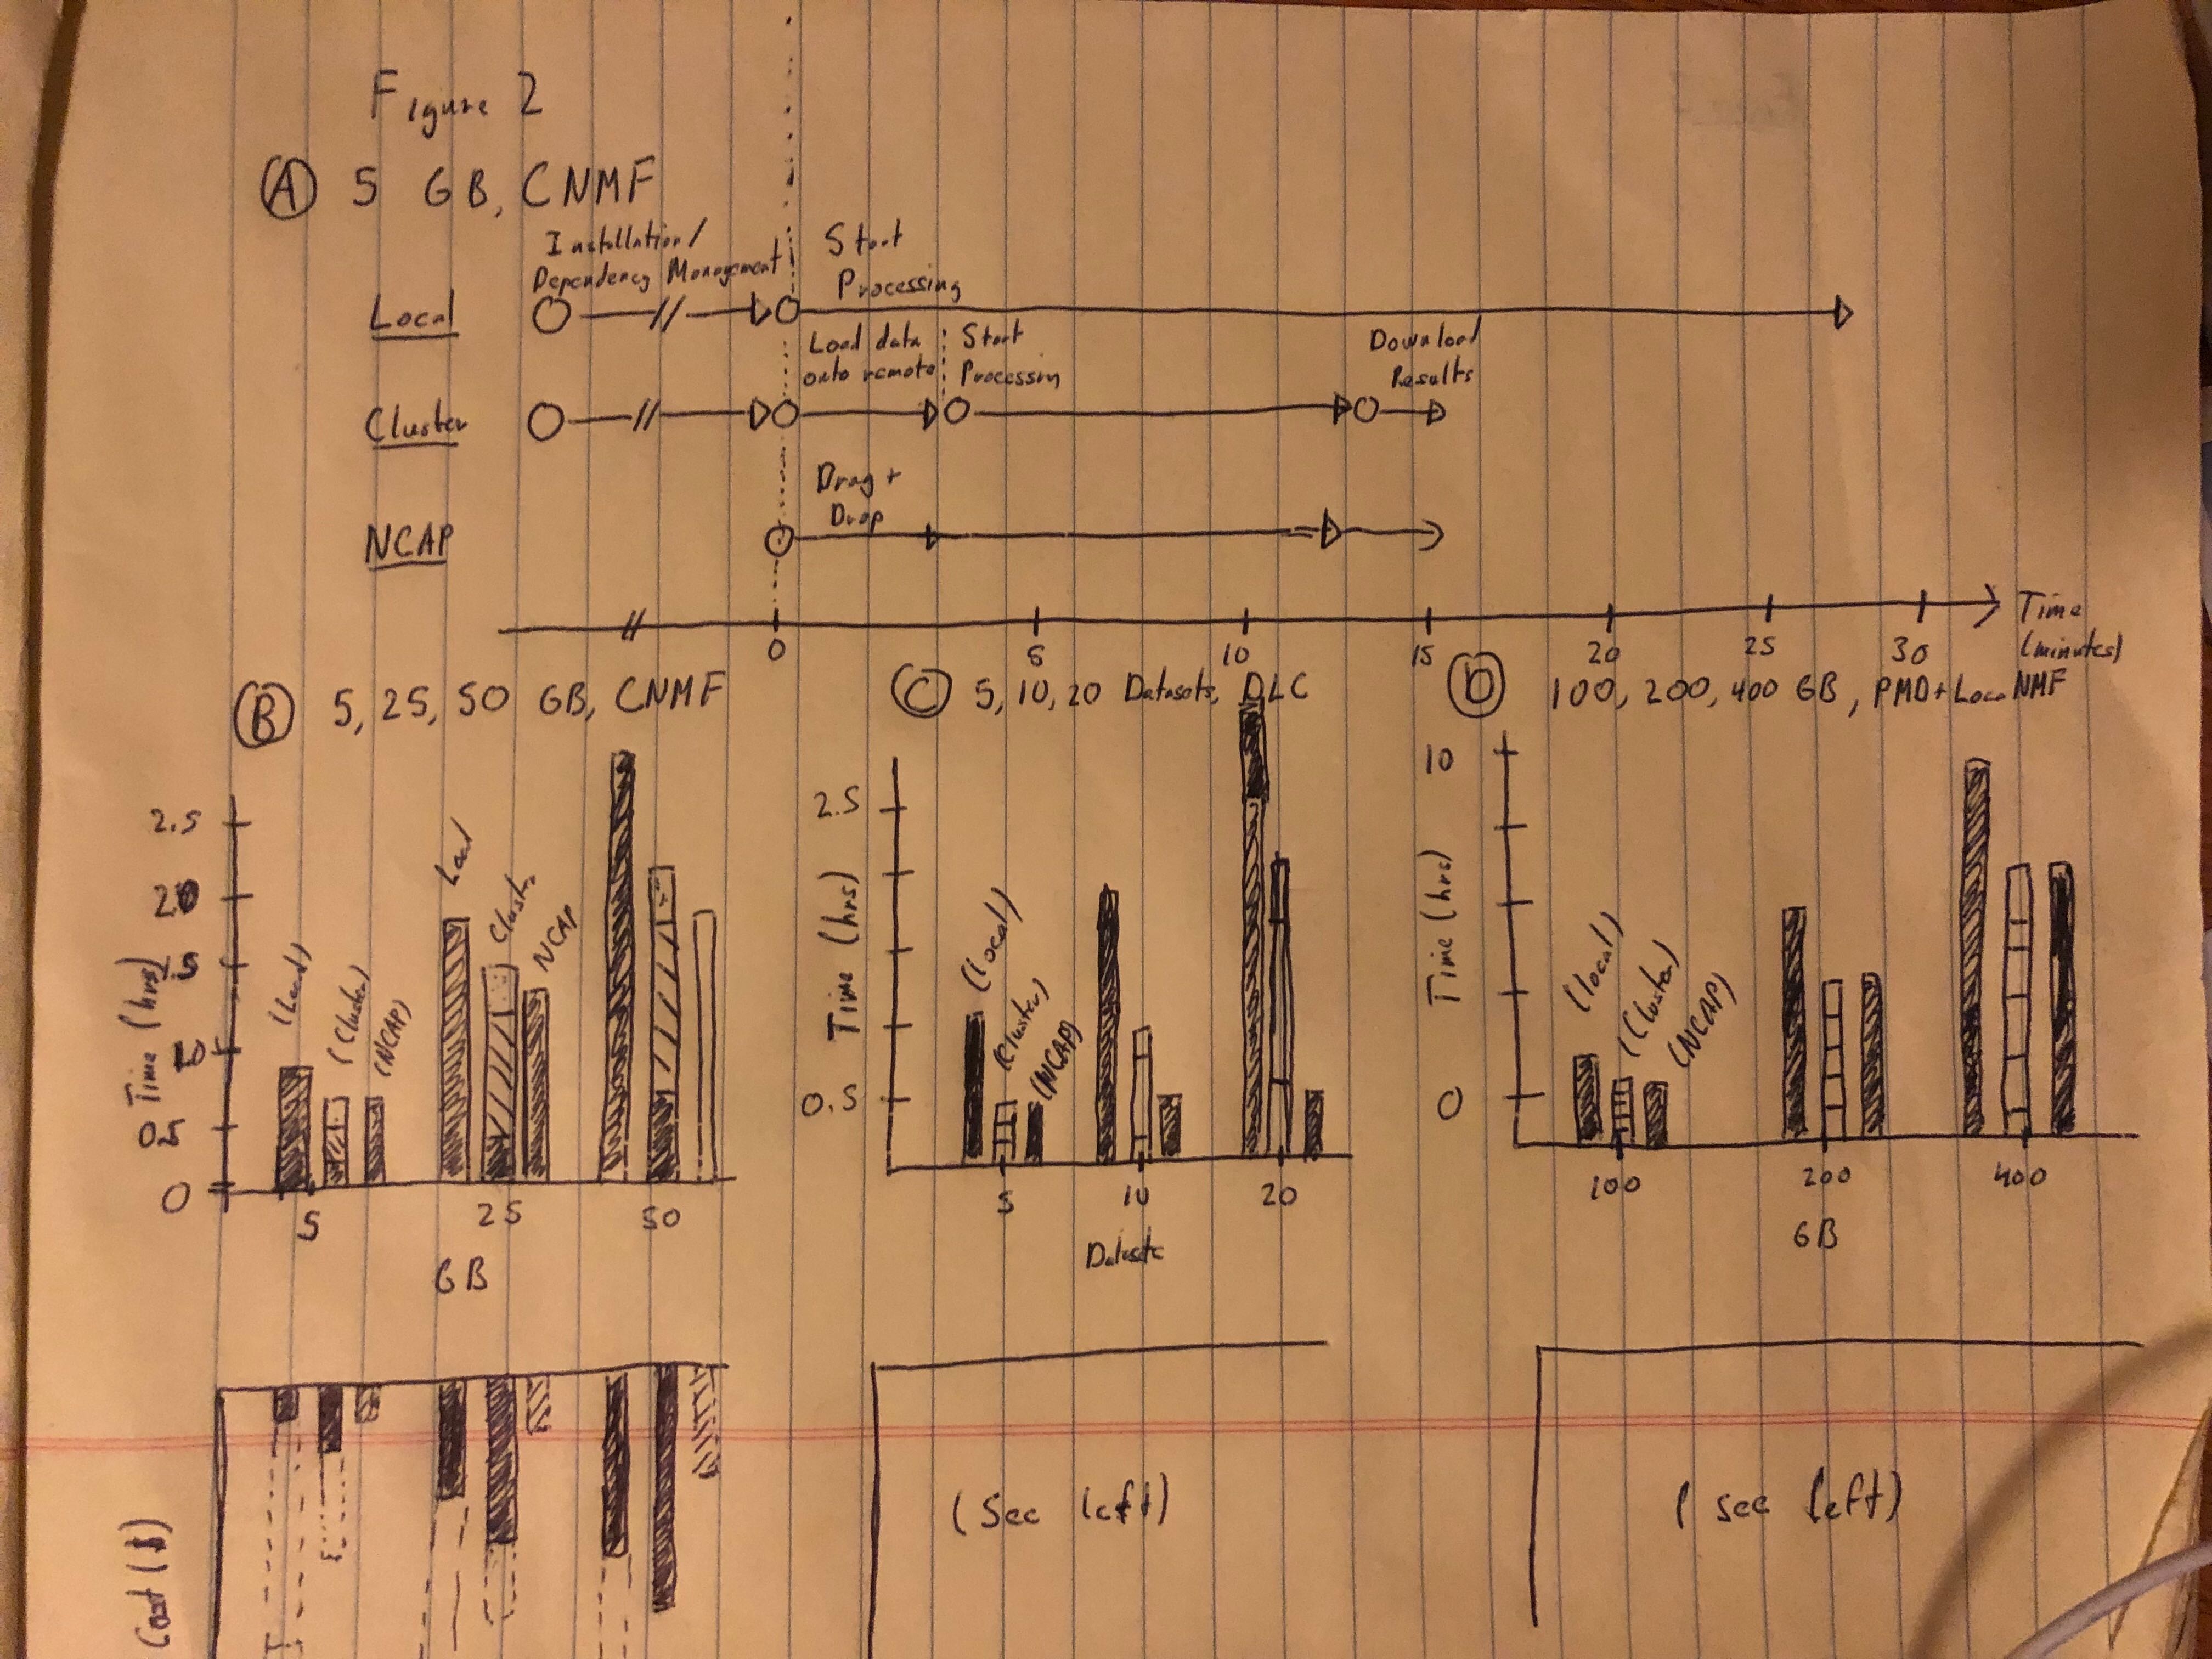 Figure 2
(A) 5 GB, CNMF
Installation/
Dependency Management
Start
Processing
Local
Load data
onto remote
Start
Processin
Download
Results
Cluster
Drag +
Drop
NCAP
0 5 10 15 20 25 30
Time
(minutes)
(B) 5, 25, 50 GB, CNMF
2.5
0
Time (hrs)
(Local)
(Cluster)
(NCAP)
Local
Cluster
NCAP
5 25 50
GB
(C) 5, 10, 20 Datasets, DLC
2.5
0.5
Time (hrs)
(Local)
(Cluster)
(NCAP)
5 10 20
(D) 100, 200, 400 GB, PMD+Loca NMF
10
0
Time (hrs)
(local)
(Cluster)
(NCAP)
100 200 400
GB
Cost ($)
(See left)
(see left)